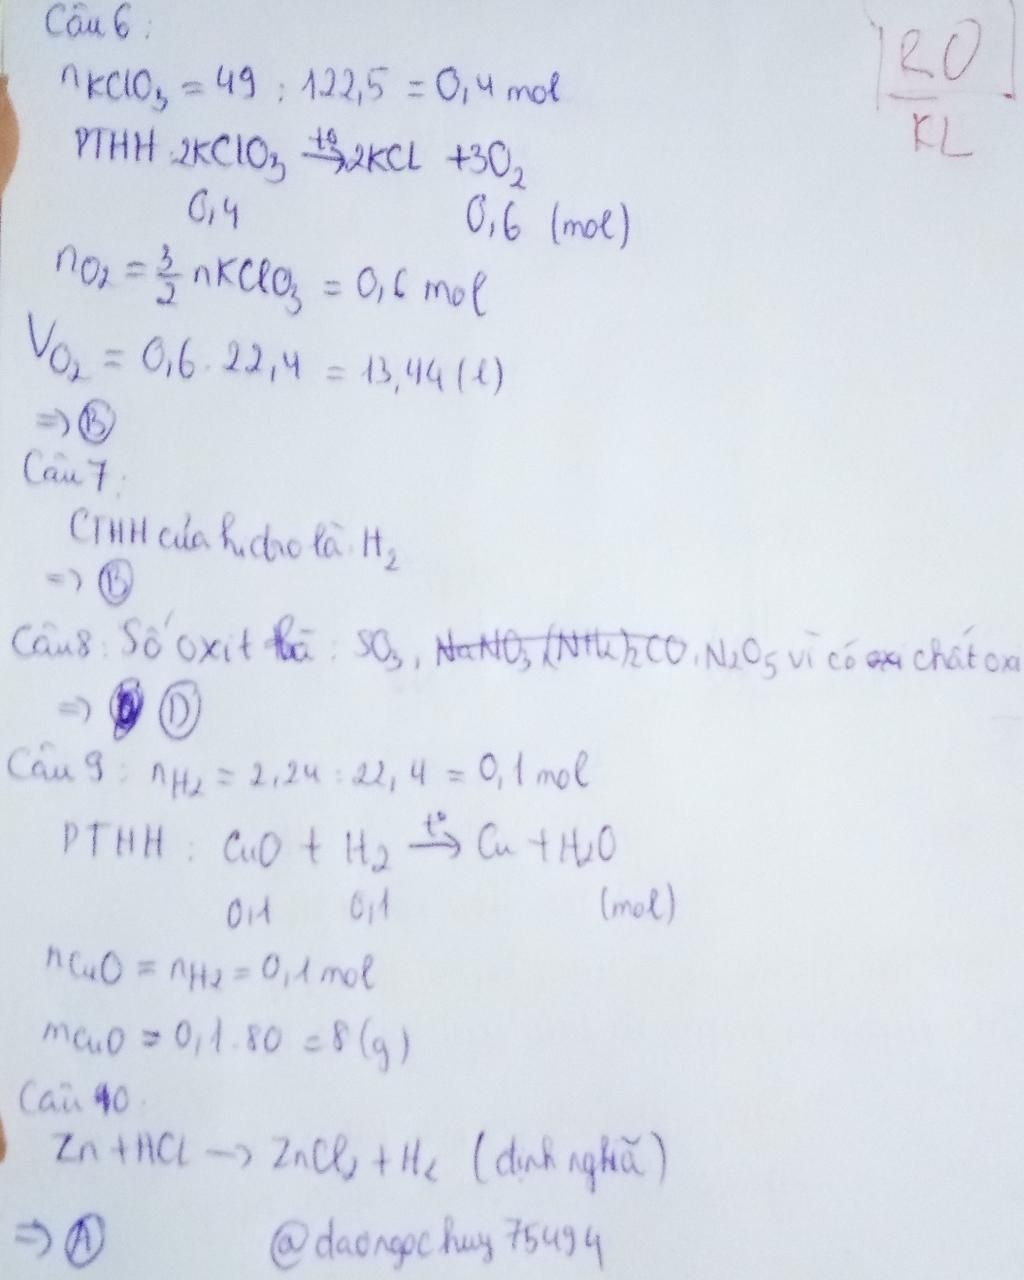 Câu 6:
nKClO3 = 49 : 122,5 = 0,4 mol
PTHH: 2KClO3 t°→ 2KCl + 3O2
0,4 0,6 (mol)
nO2 = 3/2 nKClO3 = 0,6 mol
VO2 = 0,6 . 22,4 = 13,44 (l)
=> B
Câu 7:
CTHH của hidro là: H2
=> B
Câu 8: Số oxit là: SO3, NaNO3, (NH4)2CO, N2O5 vì có oxi chất oxi
=> D
Câu 9: nH2 = 2,24 : 22,4 = 0,1 mol
PTHH: CuO + H2 t°→ Cu + H2O
0,1 0,1 (mol)
nCuO = nH2 = 0,1 mol
mCuO = 0,1 . 80 = 8 (g)
Câu 10:
Zn + HCl → ZnCl2 + H2 (định nghĩã)
=> A @daongochuy75494
RO
KL